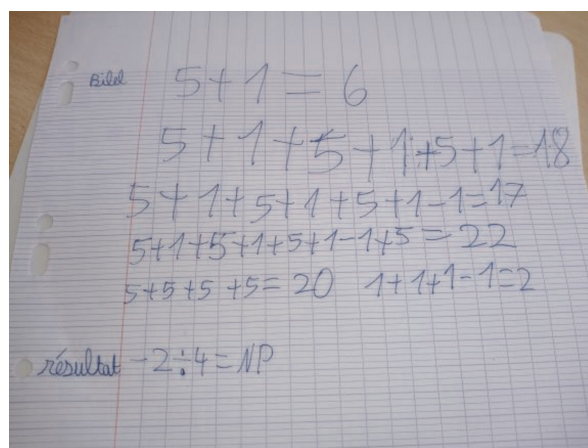 Bilel 5+1=6
5+1+5+1+5+1=18
5+1+5+1+5+1-1=17
5+1+5+1+5+1-1+5=22
5+5+5+5=20 1+1+1-1=2
résultat -2÷4=NP